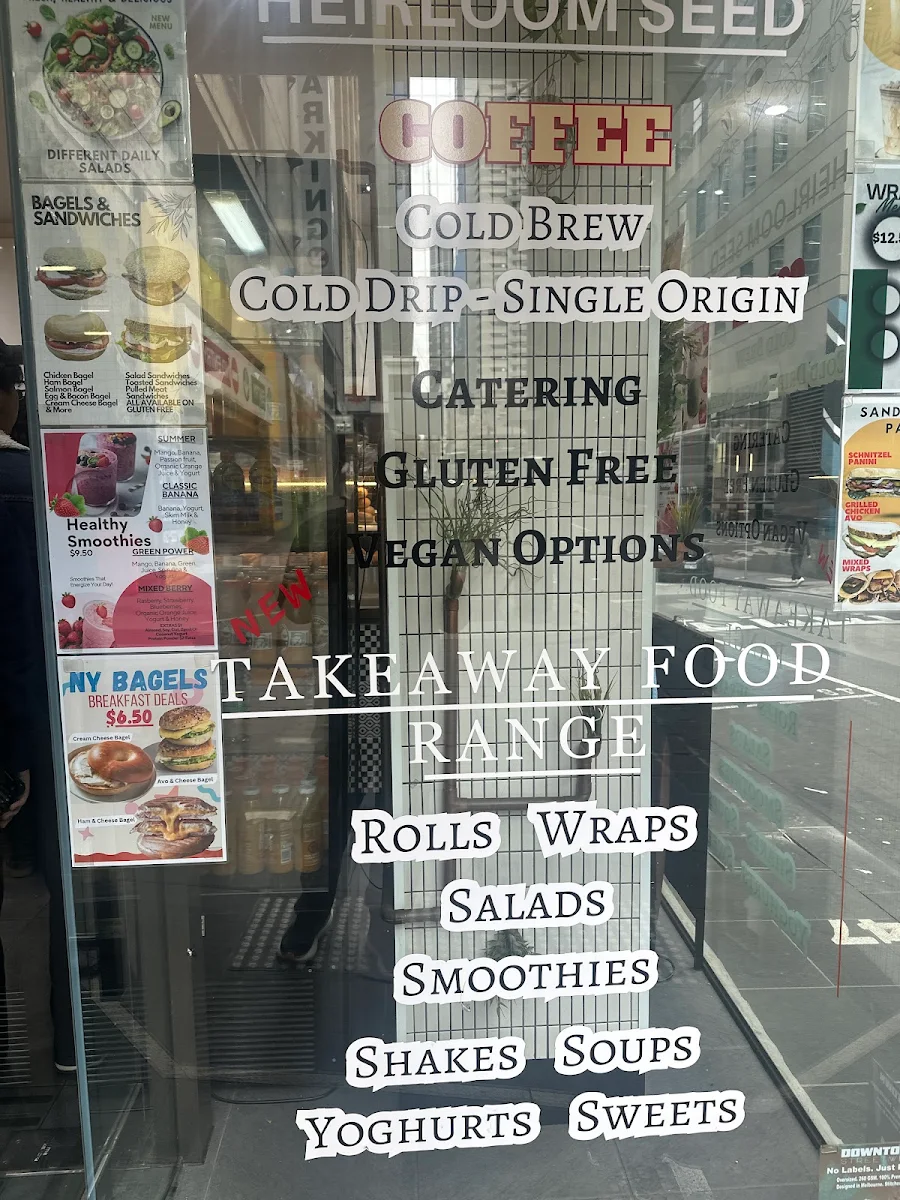 HEIRLOOM SEED
COFFEE
COLD BREW
COLD DRIP - SINGLE ORIGIN
CATERING
GLUTEN FREE
VEGAN OPTIONS
NEW
TAKEAWAY FOOD
RANGE
ROLLS WRAPS
SALADS
SMOOTHIES
SHAKES SOUPS
YOGHURTS SWEETS
HEALTHY & DELICIOUS
NEW
MENU
DIFFERENT DAILY
SALADS
BAGELS &
SANDWICHES
Chicken Bagel
Ham Bagel
Salmon Bagel
Egg & Bacon Bagel
Cream Cheese Bagel
& More
Salad Sandwiches
Toasted Sandwiches
Pulled Meat
Sandwiches
ALL AVAILABLE ON
GLUTEN FREE
SUMMER
Mango, Banana,
Passion fruit,
Organic Orange
Juice & Yogurt
CLASSIC
BANANA
Banana, Yogurt,
Skim Milk &
Honey
Healthy
Smoothies
$9.50
GREEN POWER
Mango, Banana, Green
Smoothies That
Energize Your Day!
MIXED BERRY
Organic Orange Juice
Yogurt & Honey
NY BAGELS
BREAKFAST DEALS
$6.50
Cream Cheese Bagel
Avo & Cheese Bagel
Ham & Cheese Bagel
WRA
$12.5
SAND
PA
SCHNITZEL
PANINI
GRILLED
CHICKEN
AVO
MIXED
WRAPS
DOWNTO
No Labels. Just
Designed in Melbourne.